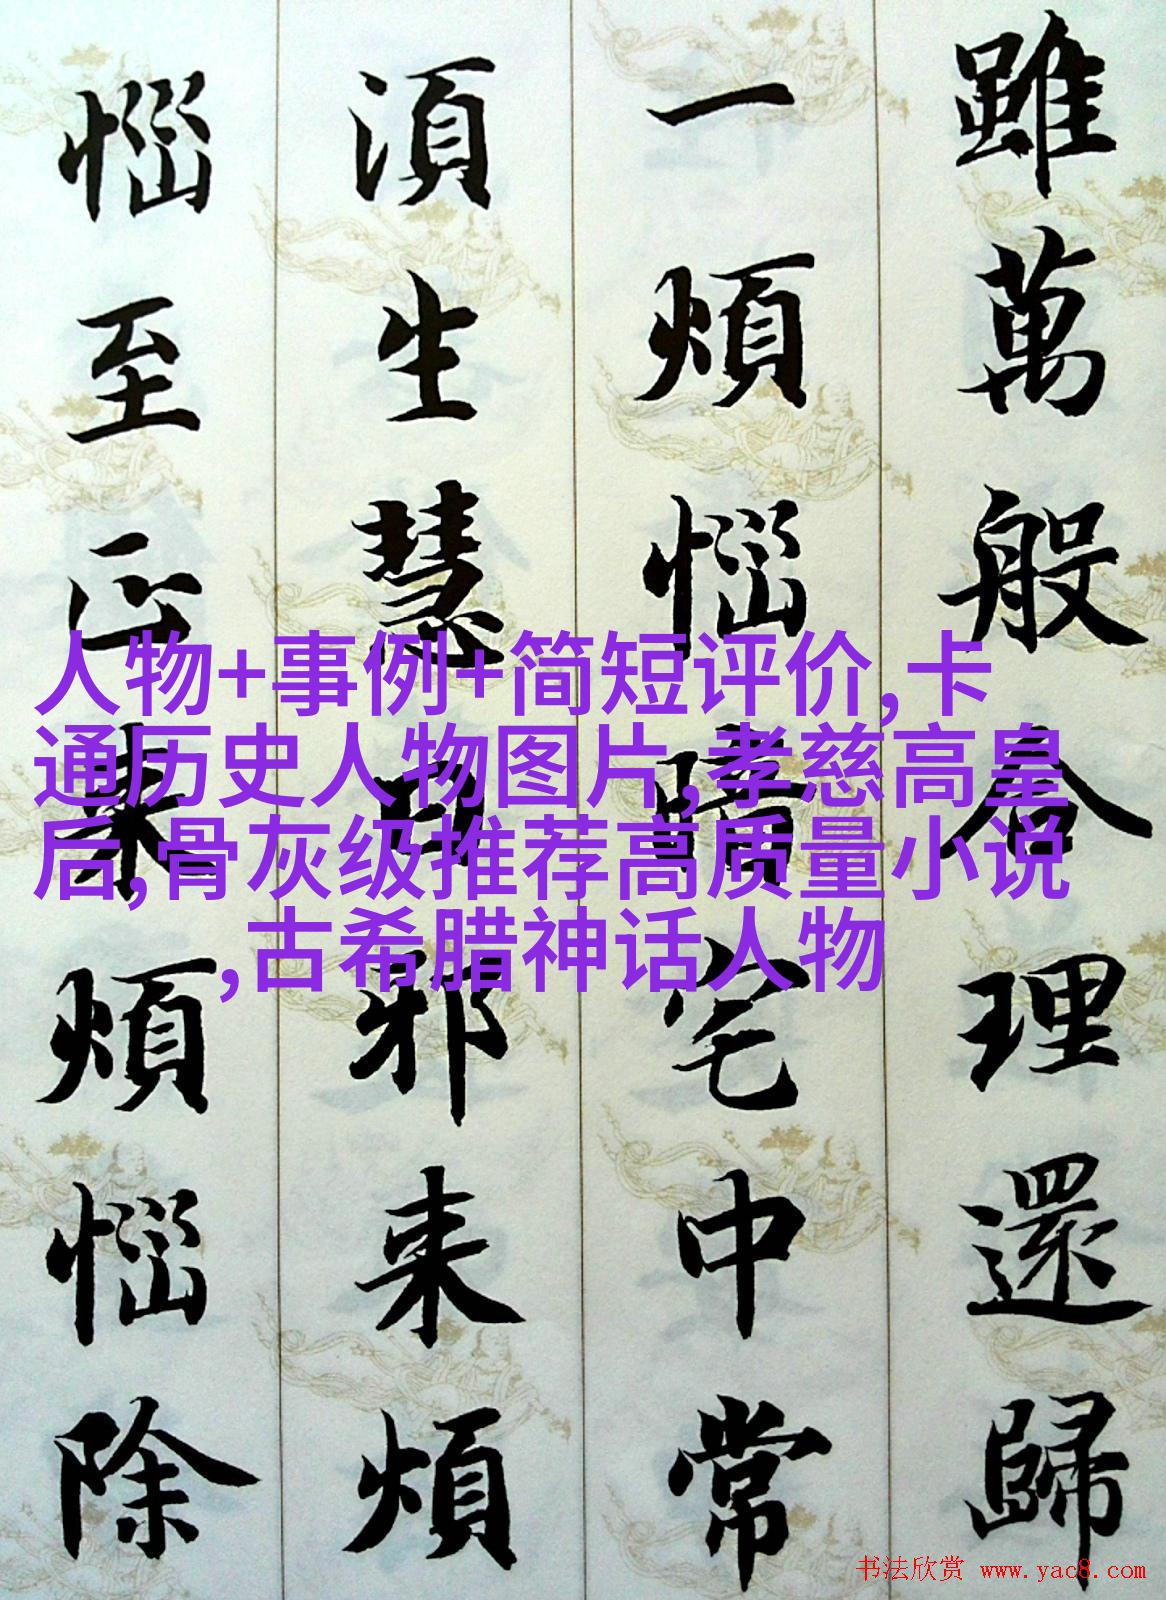 雖萬般合理還歸
一煩惱暗宅中常
湏生慧日邪来煩
惱至正来煩惱除
人物+事例+简短评价,卡
通历史人物图片,孝慈高皇
后,骨灰级推荐高质量小说
,古希腊神话人物
书法欣赏 www.yac8.com